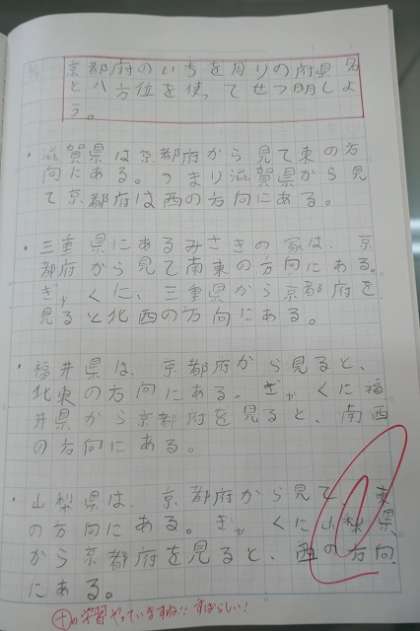 京都府のいちを周りの府県名
と八方位を使ってせつ明しよ
う。
・滋賀県は京都府から見て東の方
向にある。つまり滋賀県から見
て京都府は西の方向にある。
・三重県にあるみさきの家は、京
都府から見て南東の方向にある。
ぎゃくに、三重県から京都府を
見ると北西の方向にある。
・福井県は、京都府から見ると、
北東の方向にある。ぎゃくに福
井県から京都府を見ると、南西
の方向にある。
・山梨県は、京都府から見て、東
の方向にある。ぎゃくに山梨県
から京都府を見ると、西の方向
にある。
+の学習やっていますね!!すばらしい!